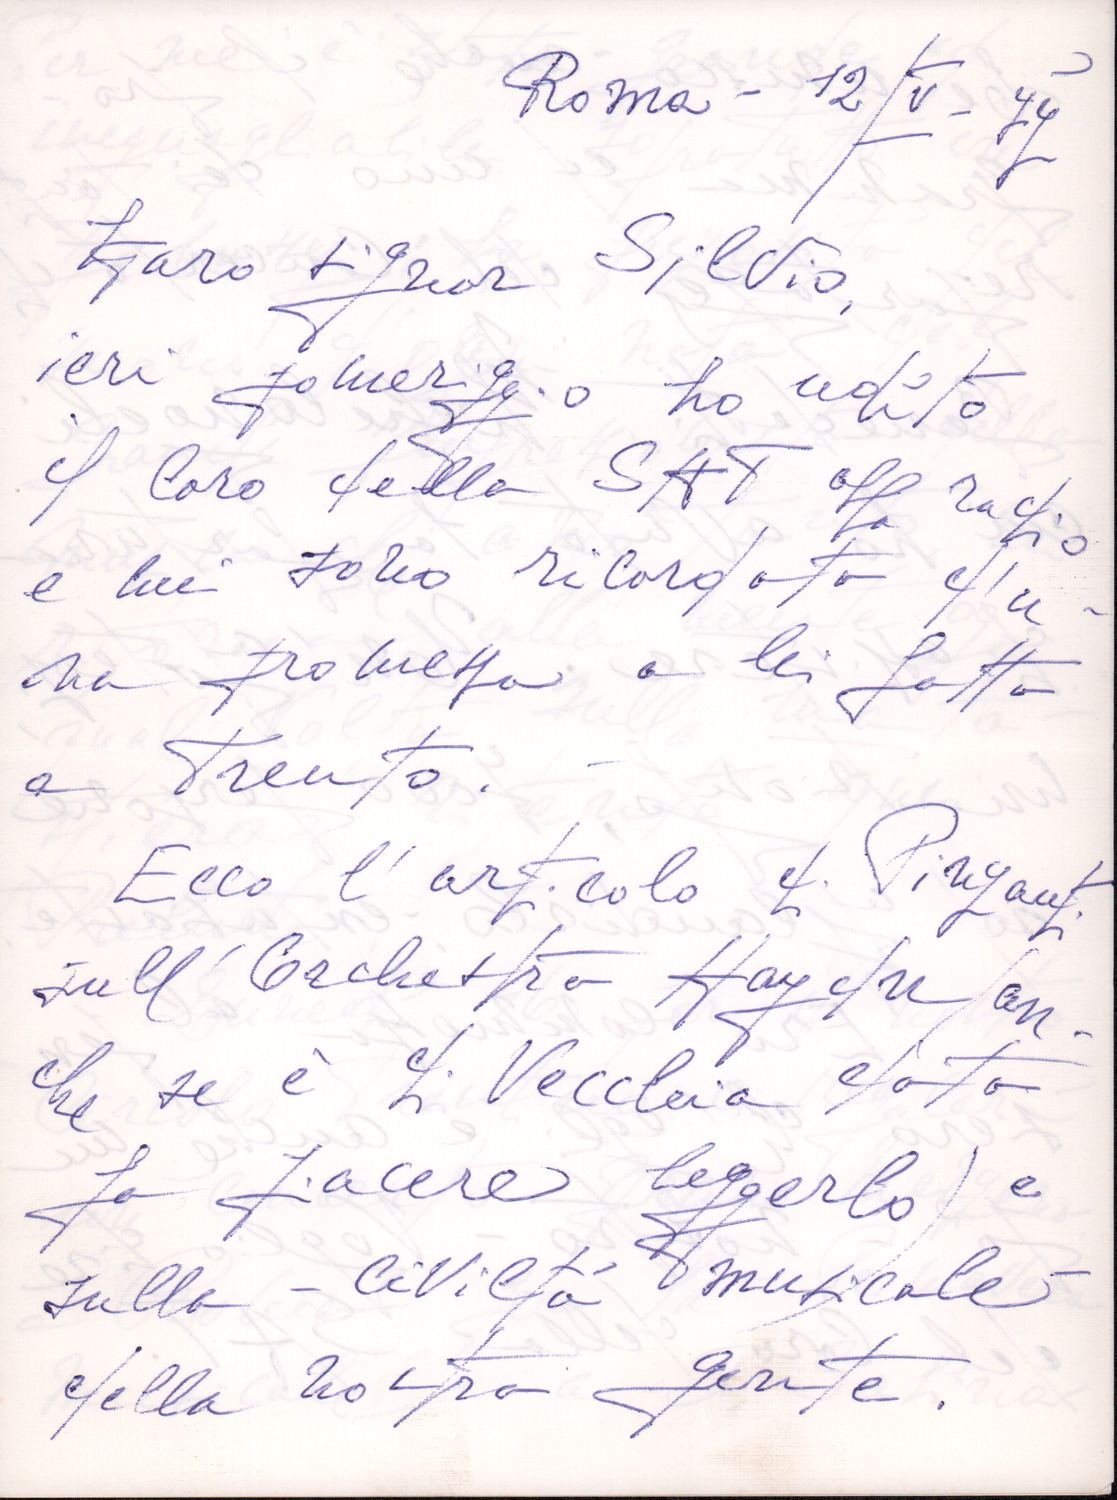 Roma - 12/V - 77
Caro signor Silvio,
ieri pomeriggio ho udito
il Coro della SAT alla radio
e mi sono ricordata d'u-
na promessa a lei fatta
a Trento. -
Ecco l'articolo di Pinzauti
sull'Orchestra Haydn (an-
che se è di vecchia data
fa piacere leggerlo) e
sulla - civiltà musicale -
della nostra gente.